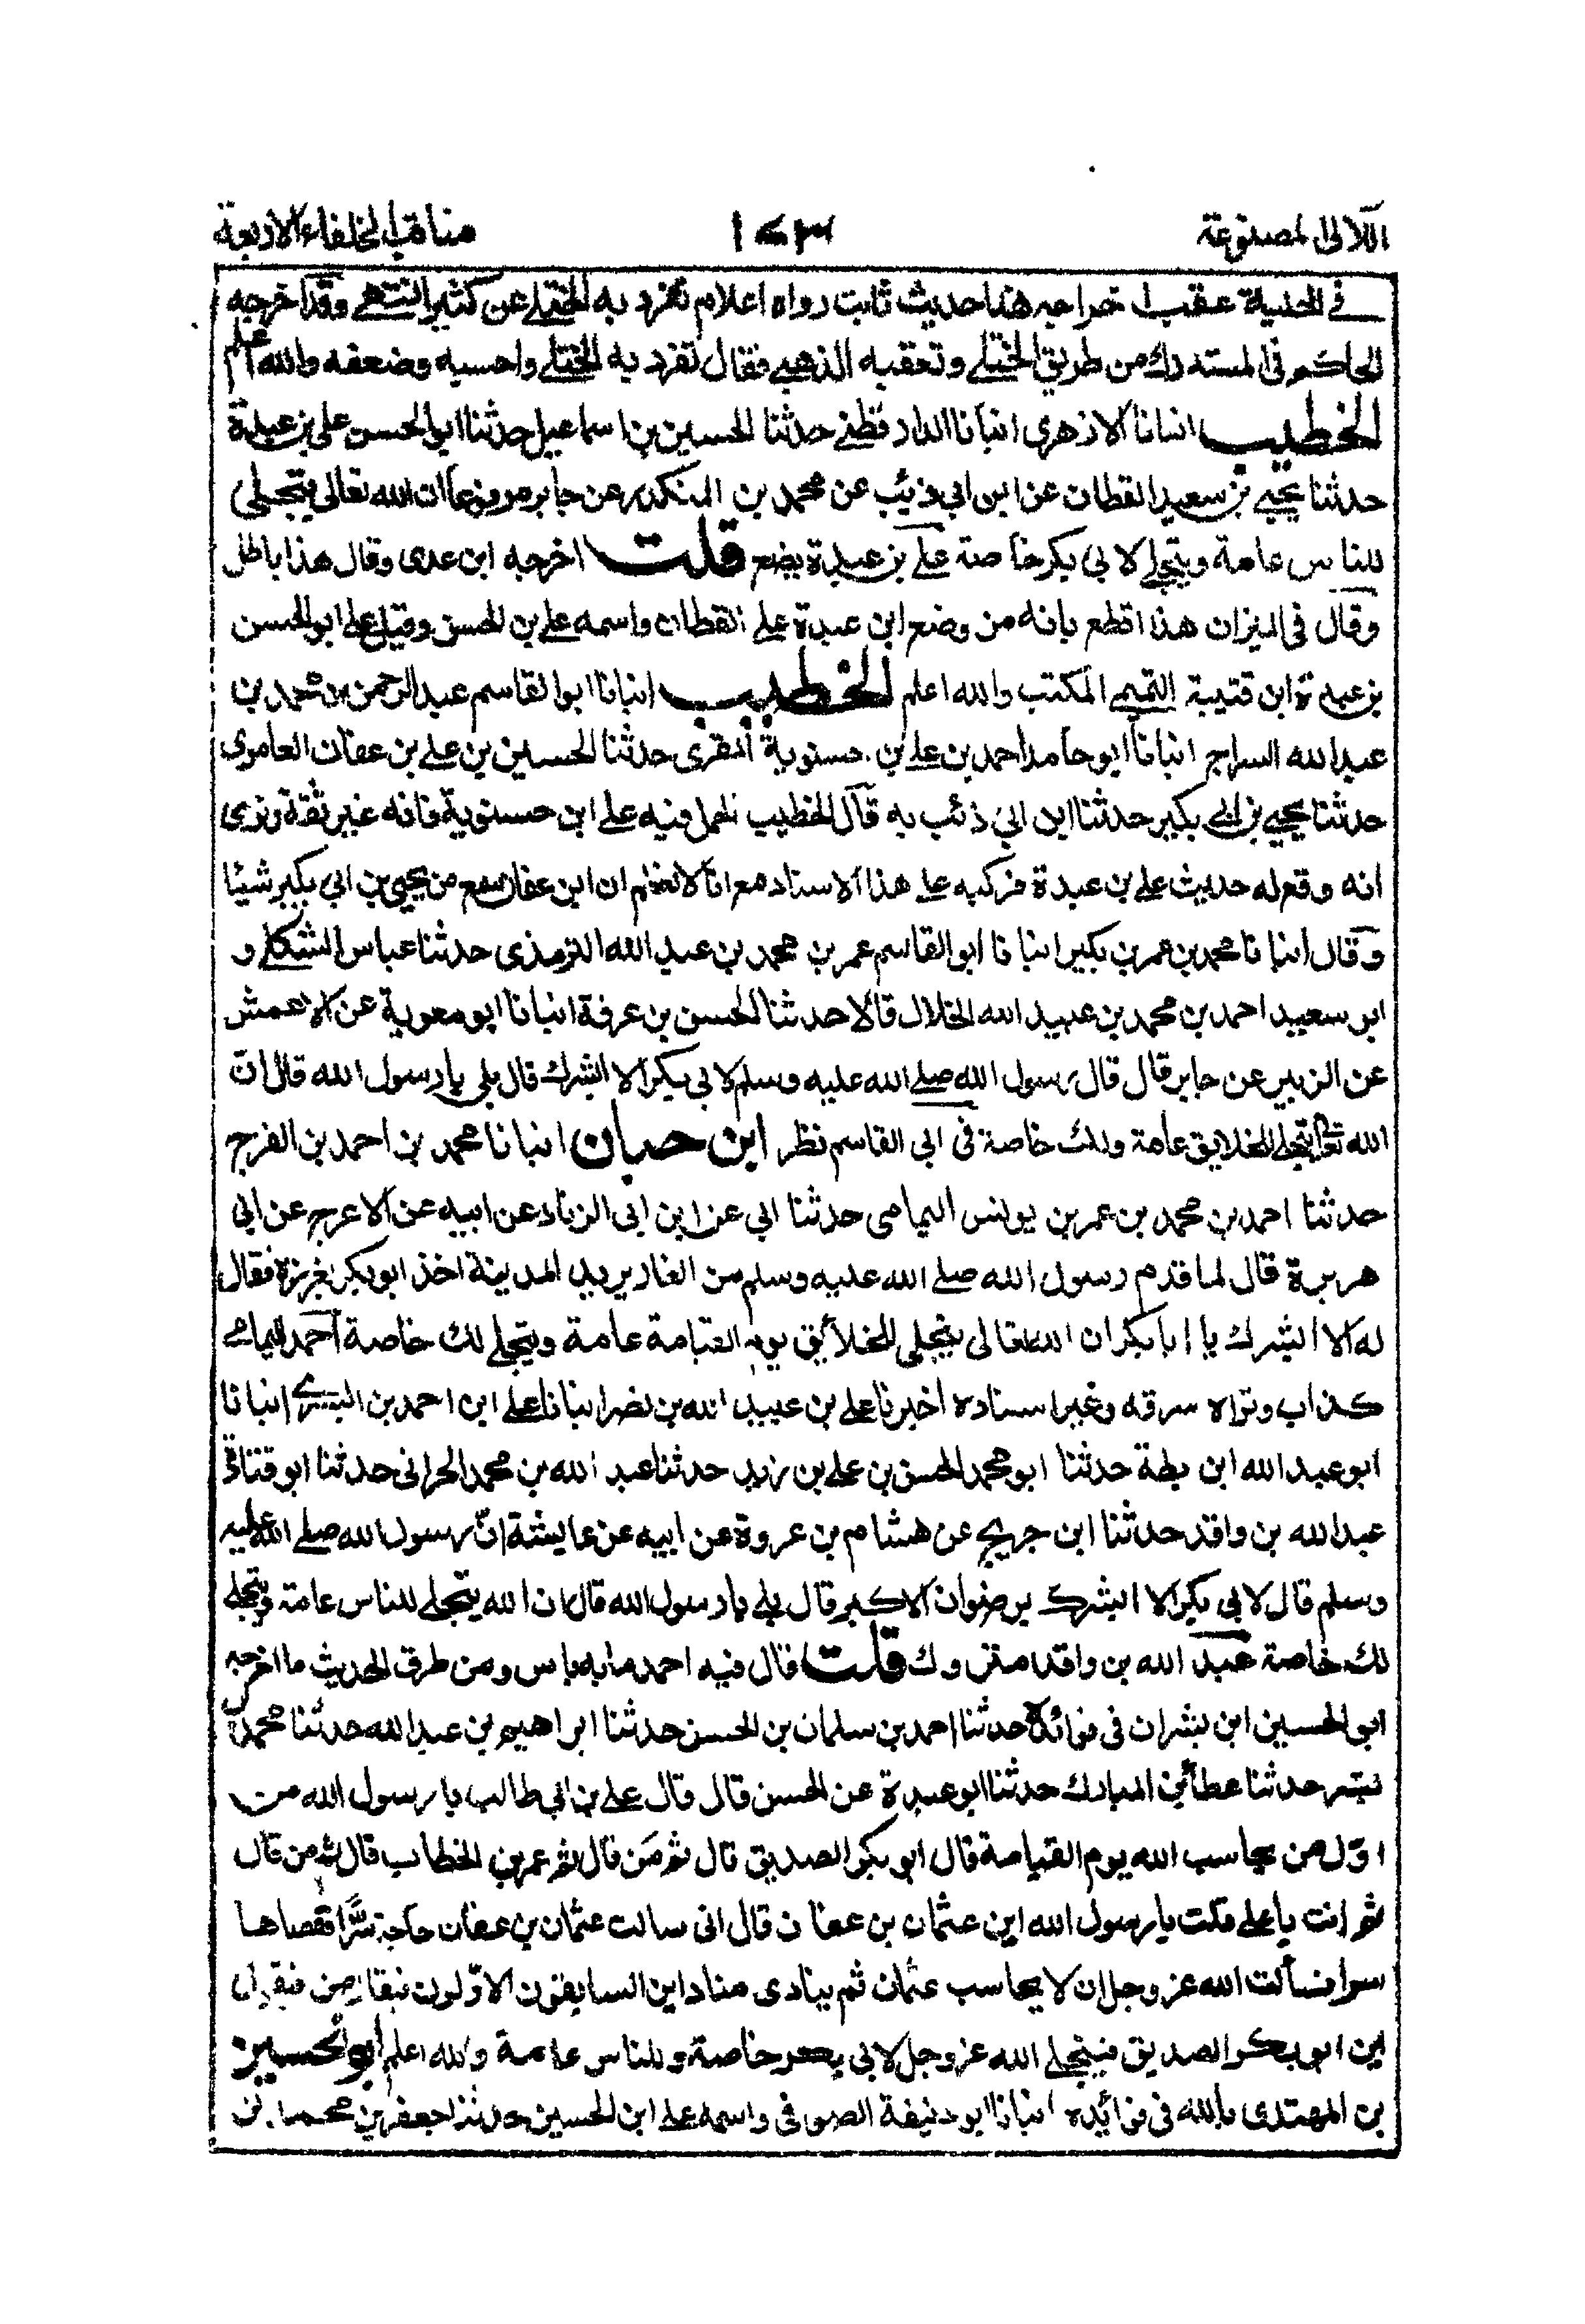 اللآلى المصنوعة ١٤٣ مناقب الخلفاء الاربعة
فى الحلية عقب اخراجه هذا حديث ثابت رواه اعلام تفرد به الختلے عن كثير انتهے وقد اخرجه
الحاكم فى المستدرك من طريق الختلے وتعقبه الذهبے فقال تفرد به الختلے واحسبه وضعفه والله اعلم
الخطيب انبانا الازهرى انبانا الدارقطنے حدثنا الحسين بن اسماعيل حدثنا ابو الحسن على بن عبدة
حدثنا يحيے بن سعيد القطان عن ابن ابى ذئب عن محمد بن المنكدر عن جابر مرفوعا ان الله تعالى يتجلى
للناس عامة ويتجلے لابى بكر خاصة علے بن عبدة يضع قلت اخرجه ابن عدى وقال هذا باطل
وقال فى الميزان هذا اقطع بانه من وضع ابن عبدة علے القطان واسمه علے بن الحسن وقيل علے ابو الحسن
بن عبدة ابن قتيبة التميمے المكتب والله اعلم الخطيب انبانا ابو القاسم عبد الرحمن بن محمد بن
عبد الله السراج انبانا ابو حامد احمد بن علے بن حسنوية المقرى حدثنا الحسين بن علے بن عفان العامرى
حدثنا يحيے بن ابى بكير حدثنا ابن ابى ذئب به قال الخطيب نحمل فيه علے ابن حسنوية فانه غير ثقة ونرى
انه وقع له حديث علے بن عبدة فركبه علے هذا الاسناد مع انا لا نعلم ان ابن عفان سمع من يحيى بن ابى بكير شيئا
وقال انبانا محمد بن عمر بن بكير انبانا ابو القاسم عمر بن محمد بن عبد الله الترمذى حدثنا عباس الشكلے و
ابو سعيد احمد بن محمد بن عبيد الله الخلال قالا حدثنا الحسن بن عرفة انبانا ابو معوية عن الاعمش
عن الزبير عن جابر قال قال رسول الله صلے الله عليه وسلم لابى بكر الا ابشرك قال بلى يا رسول الله قال ان
الله تعالى يتجلے للخلايق عامة ولك خاصة فى ابى القاسم نظر ابن حبان انبانا محمد بن احمد بن الفرج
حدثنا احمد بن محمد بن عمر بن يونس اليمامى حدثنا ابى عن ابن ابى الزناد عن ابيه عن الاعرج عن ابى
هريرة قال لما قدم رسول الله صلے الله عليه وسلم من الغار يريد المدينة اخذ ابو بكر بغرزه فقال
له الا ابشرك يا ابا بكر ان الله تعالى يتجلى للخلائق يوم القيامة عامة ويتجلے لك خاصة احمد اليمامے
كذاب وتراه سرقه وغير اسناده اخبرنا علے بن عبيد الله بن نصر انبانا علے ابن احمد بن البسرے انبانا
ابو عبد الله ابن بطة حدثنا ابو محمد الحسن بن علے بن زيد حدثنا عبد الله بن محمد الحرانى حدثنا ابو قتادة
عبد الله بن واقد حدثنا ابن جريج عن هشام بن عروة عن ابيه عن عايشة ان رسول الله صلے الله عليه
وسلم قال لابى بكر الا ابشرك برضوان الاكبر قال بلے يا رسول الله قال ان الله يتجلے للناس عامة ويتجلے
لك خاصة عبد الله بن واقد متروك قلت قال فيه احمد ما به باس ومن طرق الحديث ما اخرجه
ابو الحسين ابن بشران فى فوائده حدثنا احمد بن سلمان بن الحسن حدثنا ابراهيم بن عبد الله حدثنا محمد بن
حدثنا عطاء بن المبارك حدثنا ابو عبيدة عن الحسن قال قال علے بن ابى طالب يا رسول الله من
اول من يحاسب الله يوم القيامة قال ابو بكر الصديق قال ثم من قال ثم عمر بن الخطاب قال ثم من قال
ثم انت يا علے قلت يا رسول الله اين عثمان بن عفان قال انى سالت عثمان بن عفان حاجة سرا فقضاها
سرا فسألت الله عز وجل ان لا يحاسب عثمان ثم ينادى مناد اين السابقون الاولون فيقال من فيقول
اين ابو بكر الصديق فيتجلے الله عز وجل لابى بكر خاصة وللناس عامة والله اعلم ابو الحسين
بن المهتدى بالله فى فوائده انبانا ابو حنيفة الصوفى واسمه علے ابن الحسين حدثنا جعفر بن محمد بن